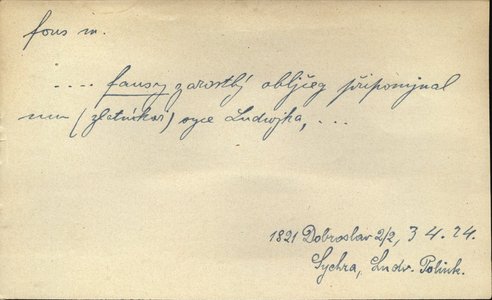 fous m.
.... fausy zarostlý obljčeg připomjnal
mu (zlatníkář) syce Ludwjka, ...
1821 Dobroslav 2/2, 3 4. 24.
Sychra, Ludv. Polink.